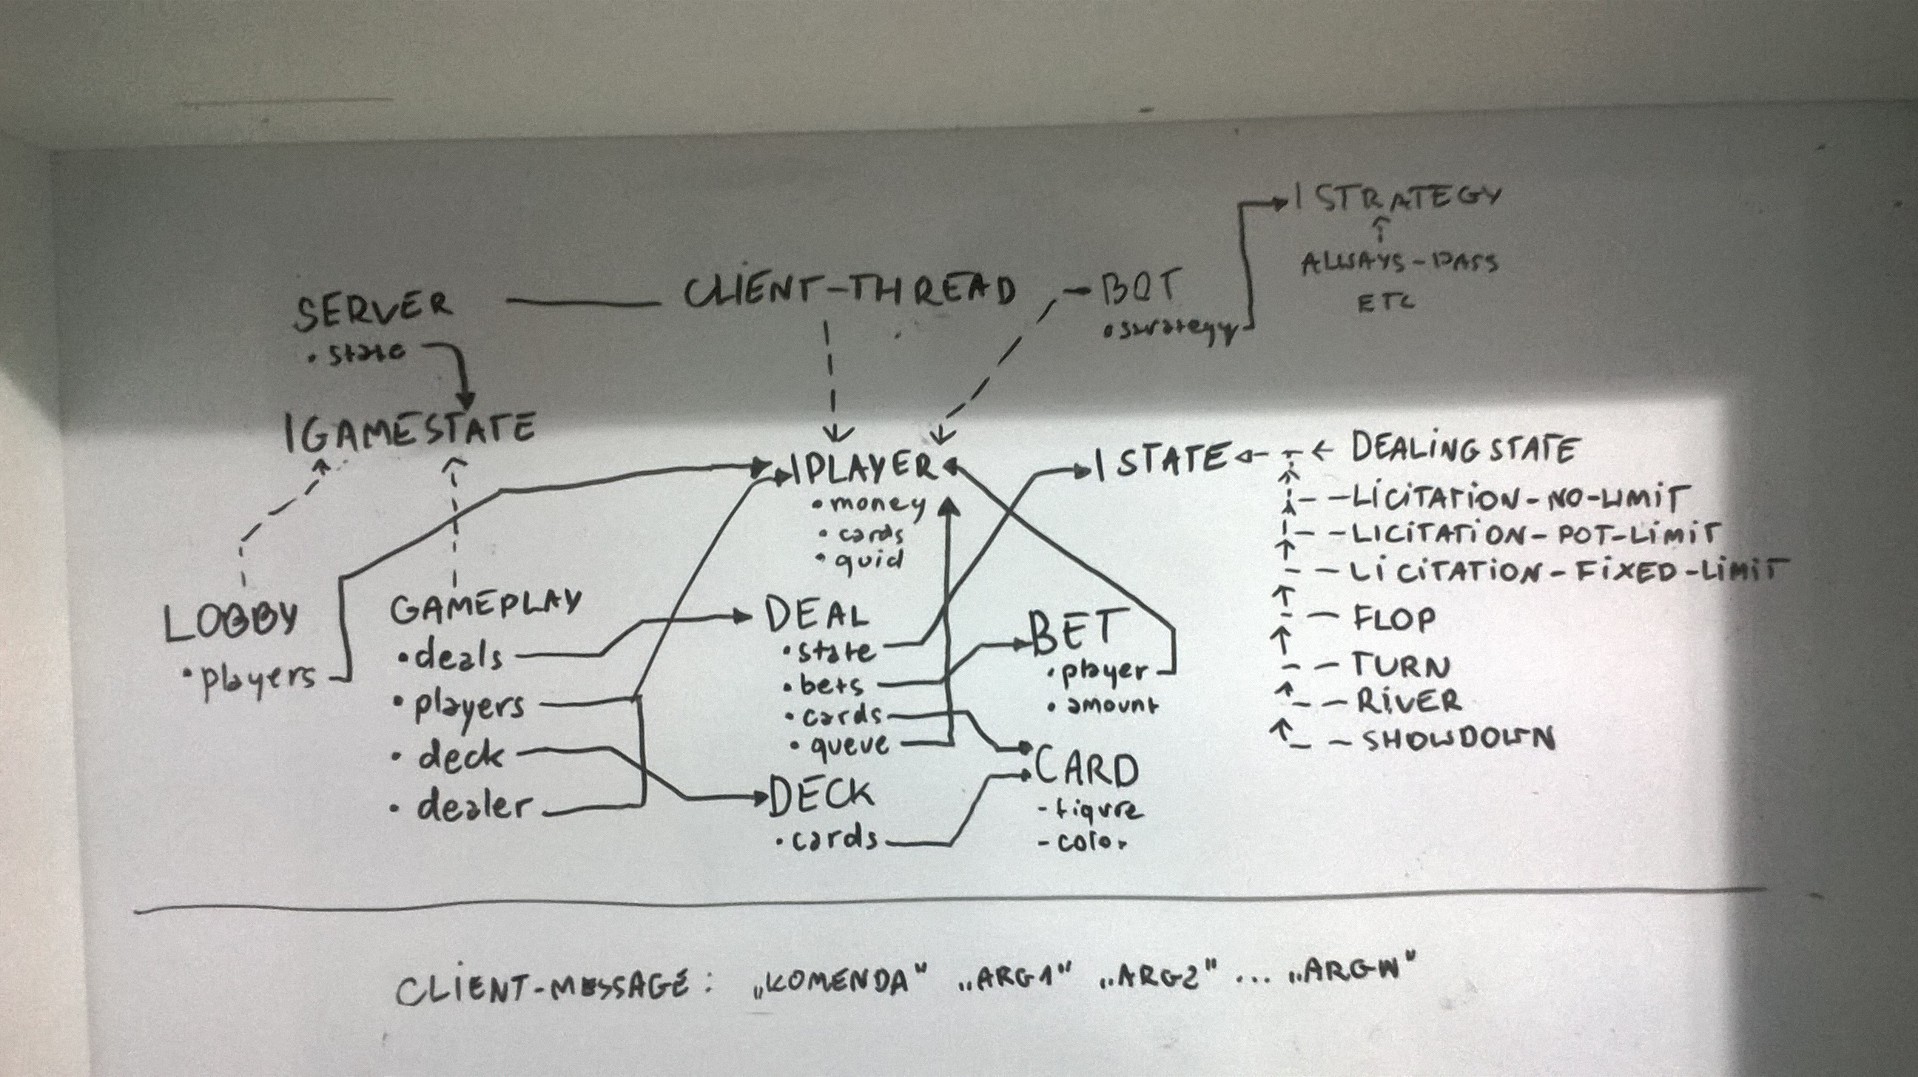 ISTRATEGY
ALWAYS-PASS
ETC
SERVER
• state
CLIENT-THREAD
BOT
• strategy
IGAMESTATE
IPLAYER
• money
• cards
• guid
ISTATE
DEALING STATE
LICITATION-NO-LIMIT
LICITATION-POT-LIMIT
LICITATION-FIXED-LIMIT
FLOP
TURN
RIVER
SHOWDOWN
LOBBY
• players
GAMEPLAY
• deals
• players
• deck
• dealer
DEAL
• state
• bets
• cards
• queue
BET
• player
• amount
DECK
• cards
CARD
- figure
- color
CLIENT-MESSAGE: „KOMENDA" „ARG1" „ARG2" ... „ARGN"